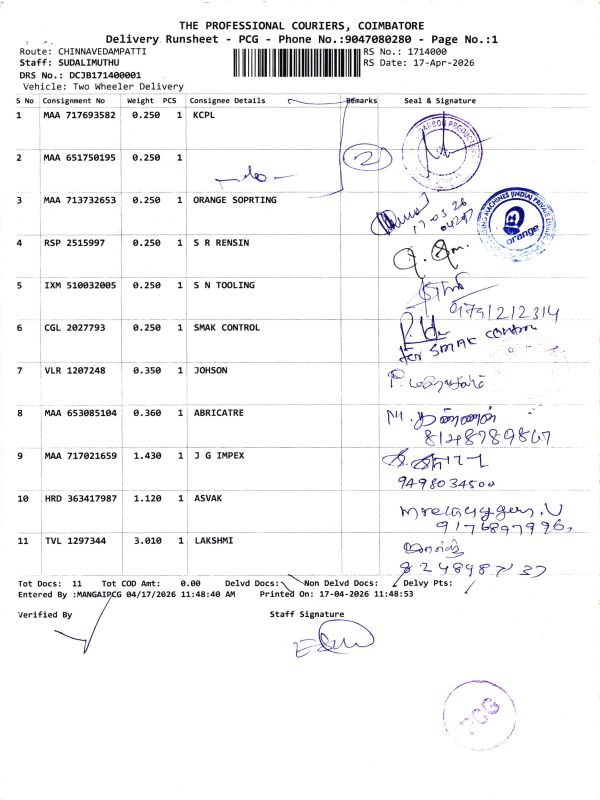 THE PROFESSIONAL COURIERS, COIMBATORE
Delivery Runsheet - PCG - Phone No.:9047080280 - Page No.:1
Route: CHINNAVEDAMPATTI
RS No.: 1714000
Staff: SUDALIMUTHU
RS Date: 17-Apr-2026
DRS No.: DCJB171400001
Vehicle: Two Wheeler Delivery
S No Consignment No Weight PCS Consignee Details Remarks Seal & Signature
1 MAA 717693582 0.250 1 KCPL
2 MAA 651750195 0.250 1
2
3 MAA 713732653 0.250 1 ORANGE SOPRTING
orange
4 RSP 2515997 0.250 1 S R RENSIN
5 IXM 510032005 0.250 1 S N TOOLING
9791212314
6 CGL 2027793 0.250 1 SMAK CONTROL
for SMAK control
7 VLR 1207248 0.350 1 JOHSON
8 MAA 653085104 0.360 1 ABRICATRE
8148789867
9 MAA 717021659 1.430 1 J G IMPEX
9498034500
10 HRD 363417987 1.120 1 ASVAK
11 TVL 1297344 3.010 1 LAKSHMI
Tot Docs: 11 Tot COD Amt: 0.00 Delvd Docs: Non Delvd Docs: Delvy Pts:
Entered By :MANGAIPCG 04/17/2026 11:48:40 AM Printed On: 17-04-2026 11:48:53
Verified By Staff Signature
PCG